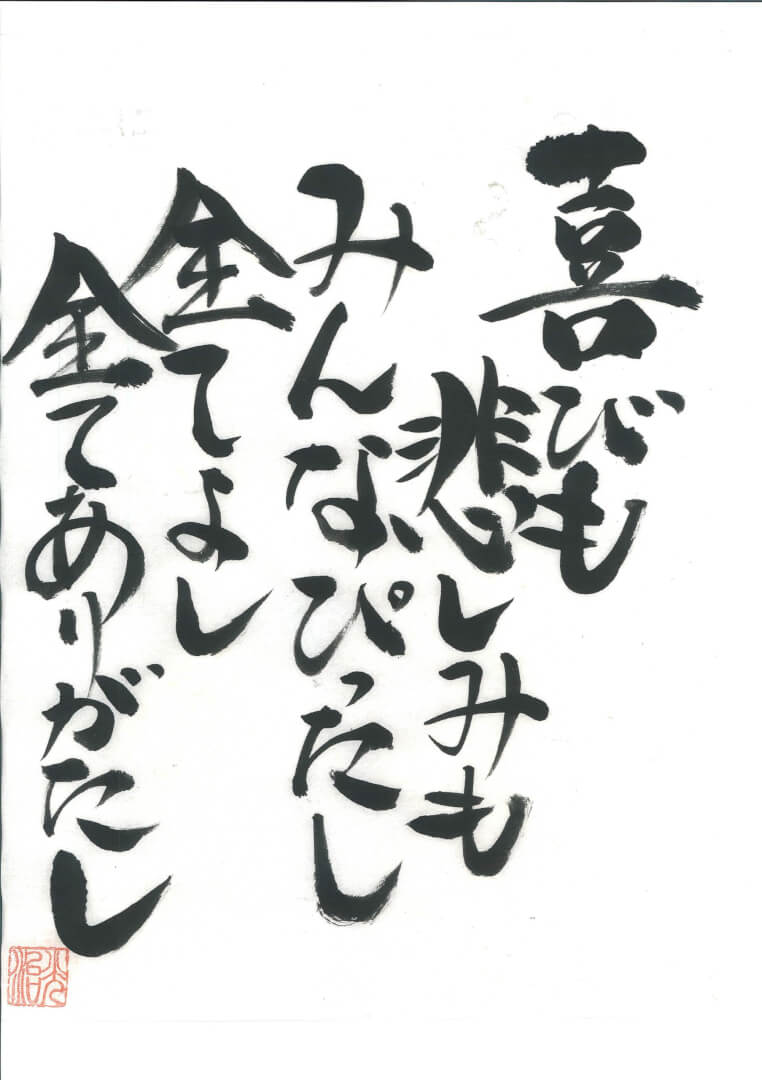 喜びも
悲しみも
みんなぴったし
全てよし
全てありがたし